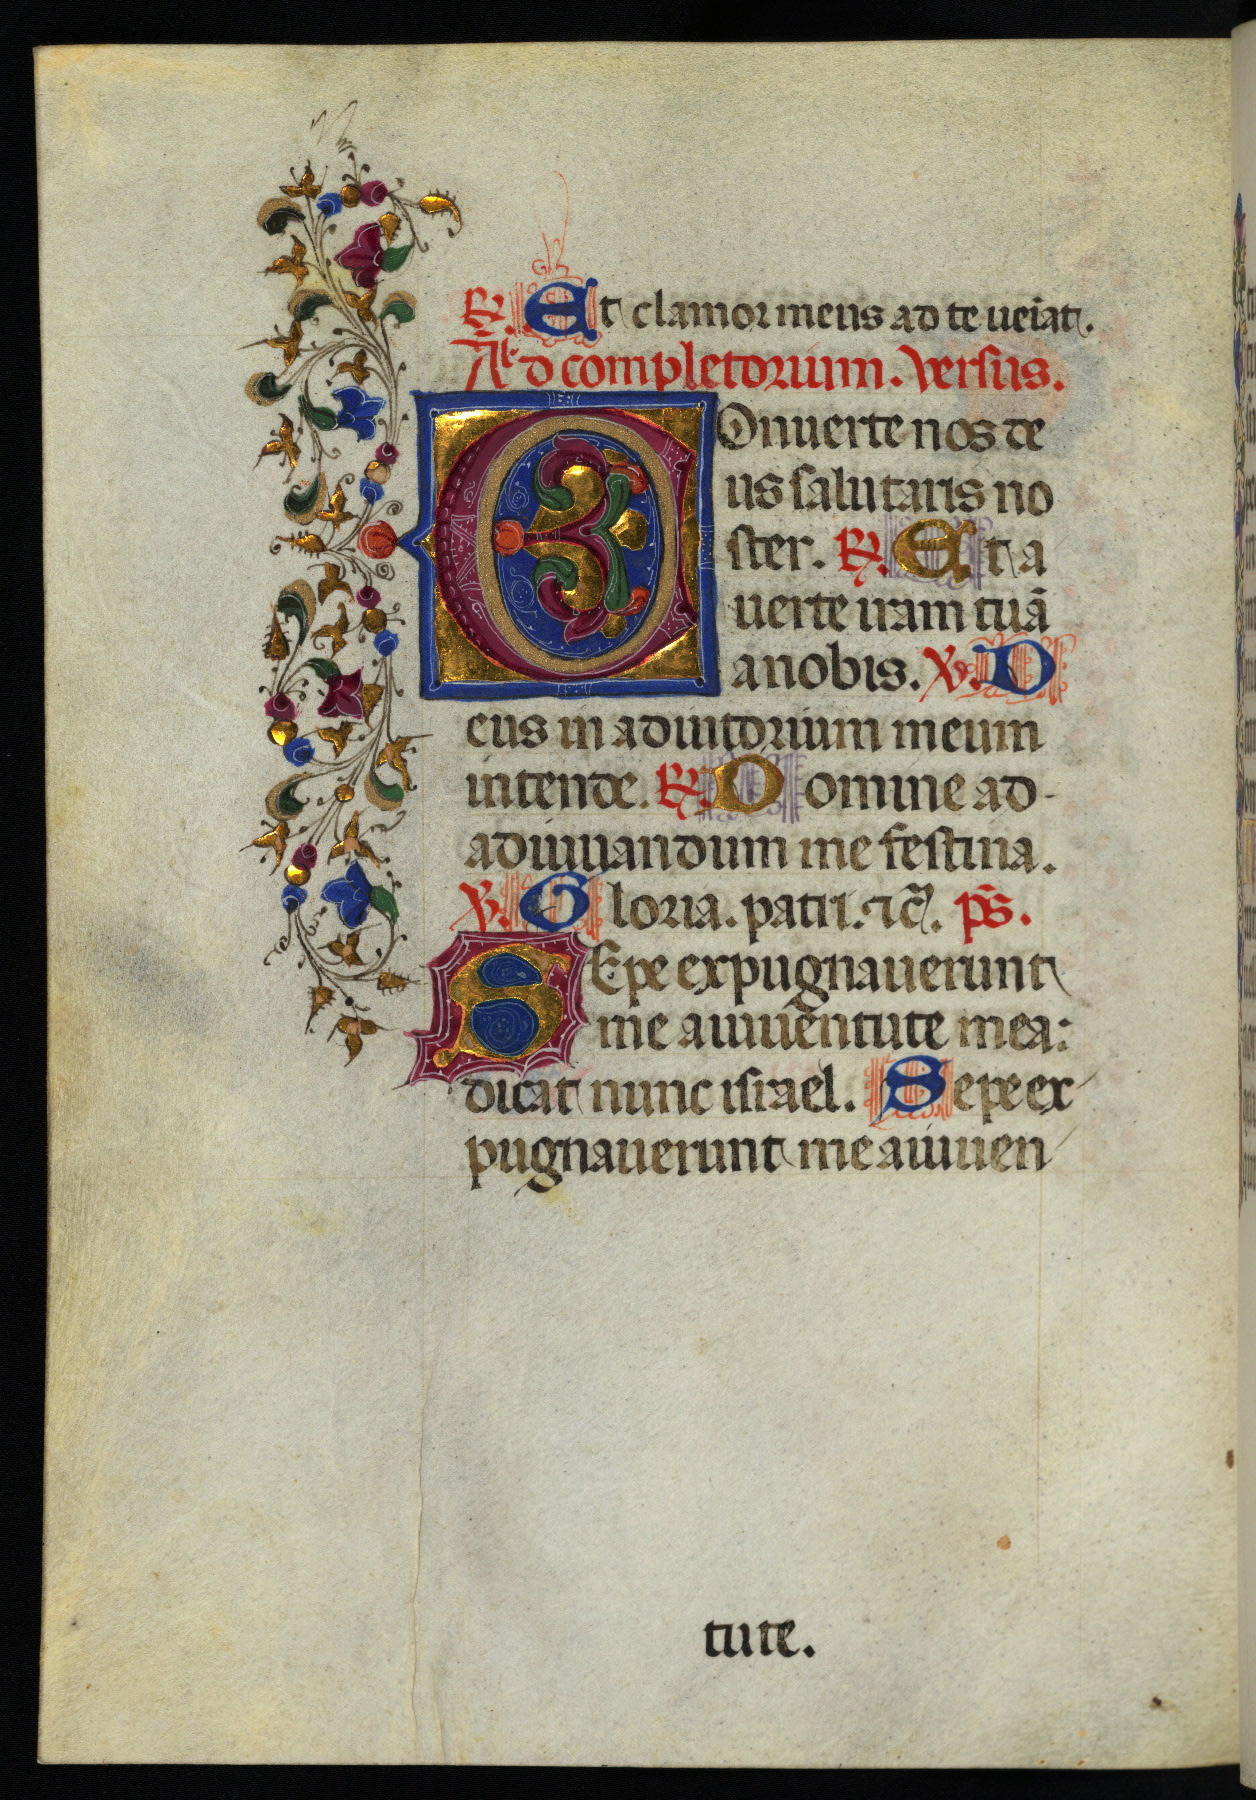 ℟. Et clamor meus ad te ueīat.
Ad completorium. Versus.
COnuerte nos de
us salutaris no
ster. ℟. Et a
uerte iram tuā
a nobis. ℣. D
eus in adiutorium meum
intende. ℟. Domine ad
adiuuandum me festina.
℣. Gloria. patri. ⁊c̄. p̄s.
SEpe expugnauerunt
me a iuuentute mea:
dicat nunc israel. Sepe ex
pugnauerunt me a iuuen
tute.